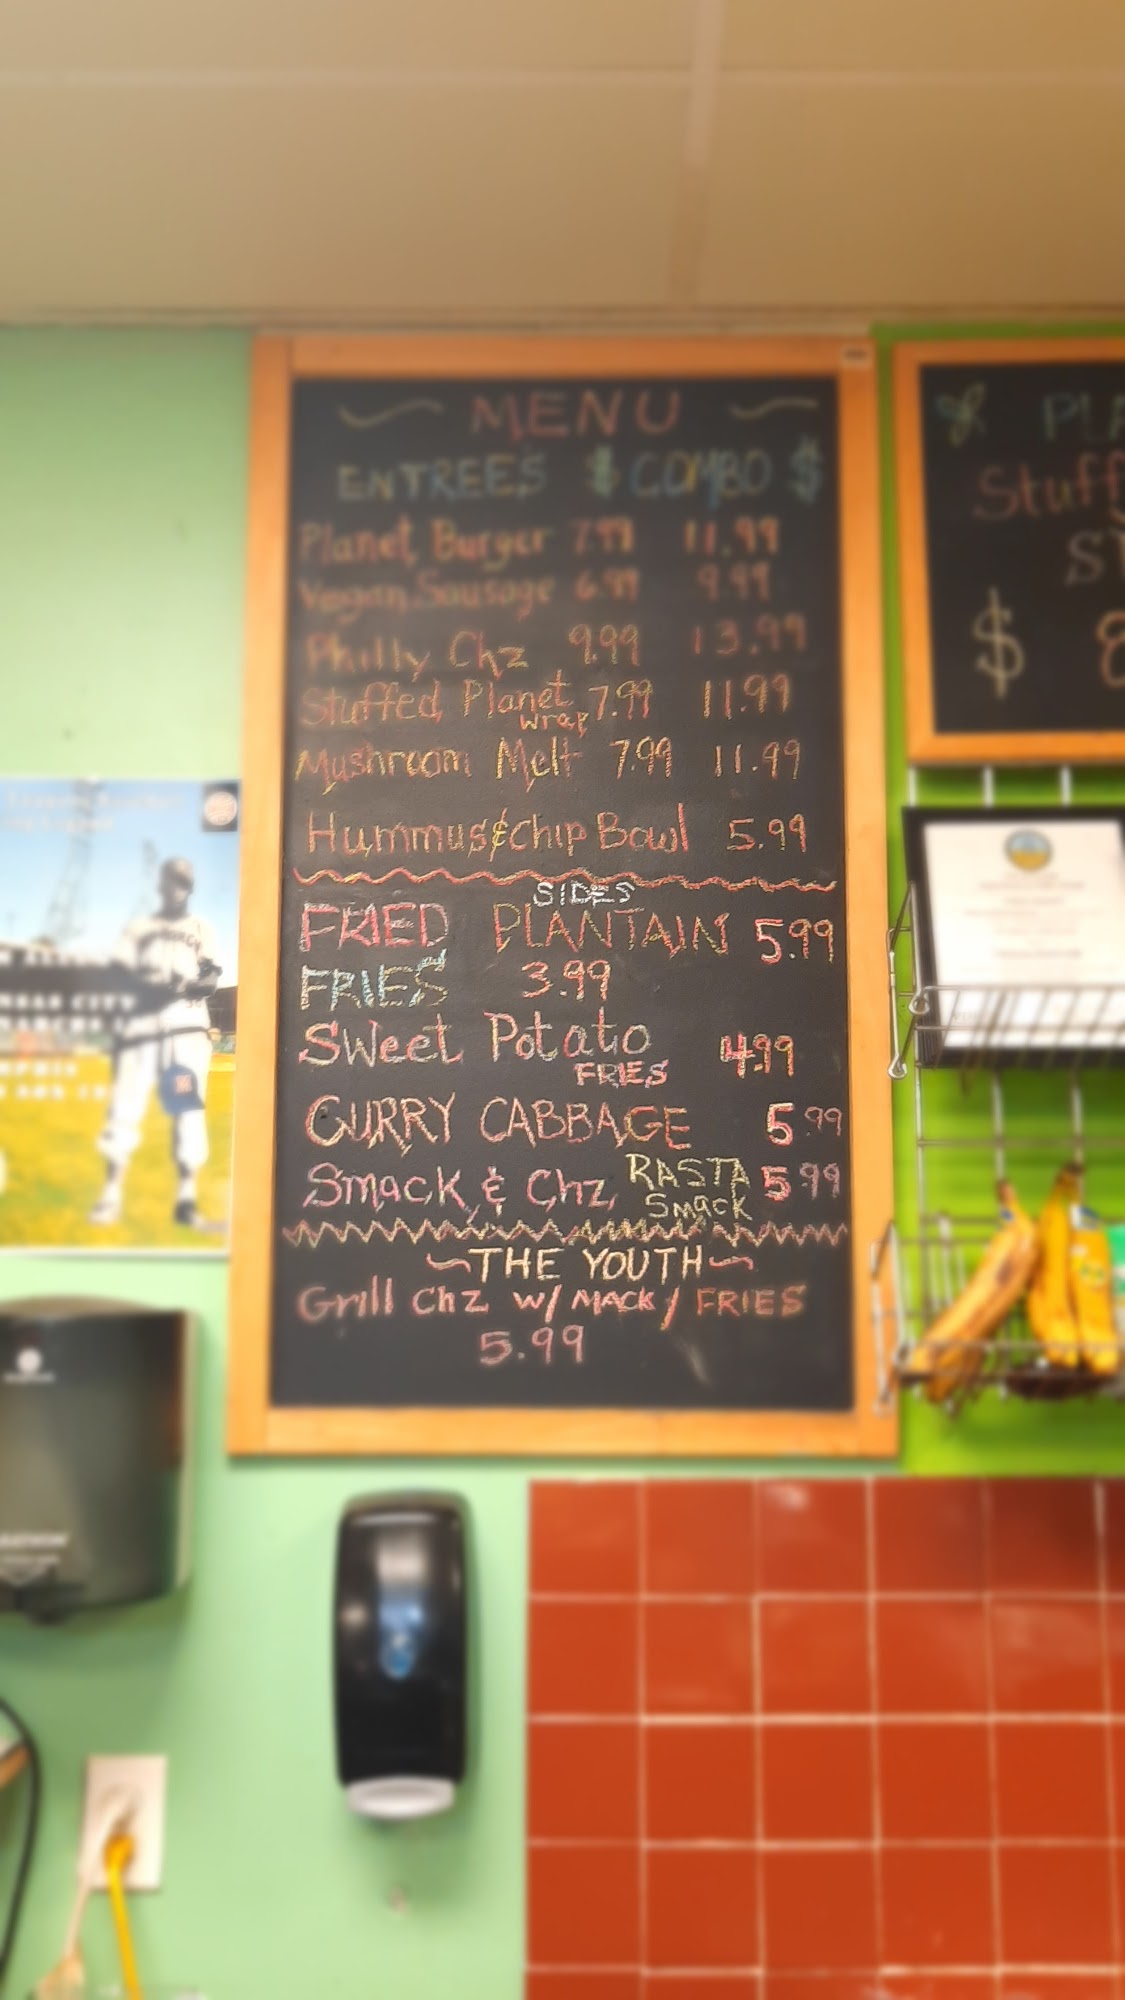 MENU
ENTREES $ COMBO $
Planet Burger 7.99 11.99
Vegan Sausage 6.99 9.99
Philly Chz 9.99 13.99
Stuffed Planet 7.99 11.99
Wrap
Mushroom Melt 7.99 11.99
Hummus & Chip Bowl 5.99
SIDES
FRIED PLANTAIN 5.99
FRIES 3.99
Sweet Potato 4.99
FRIES
CURRY CABBAGE 5.99
Smack & Chz, RASTA 5.99
Smack
~THE YOUTH~
Grill Chz w/ MACK / FRIES
5.99
Stuff
$ 8